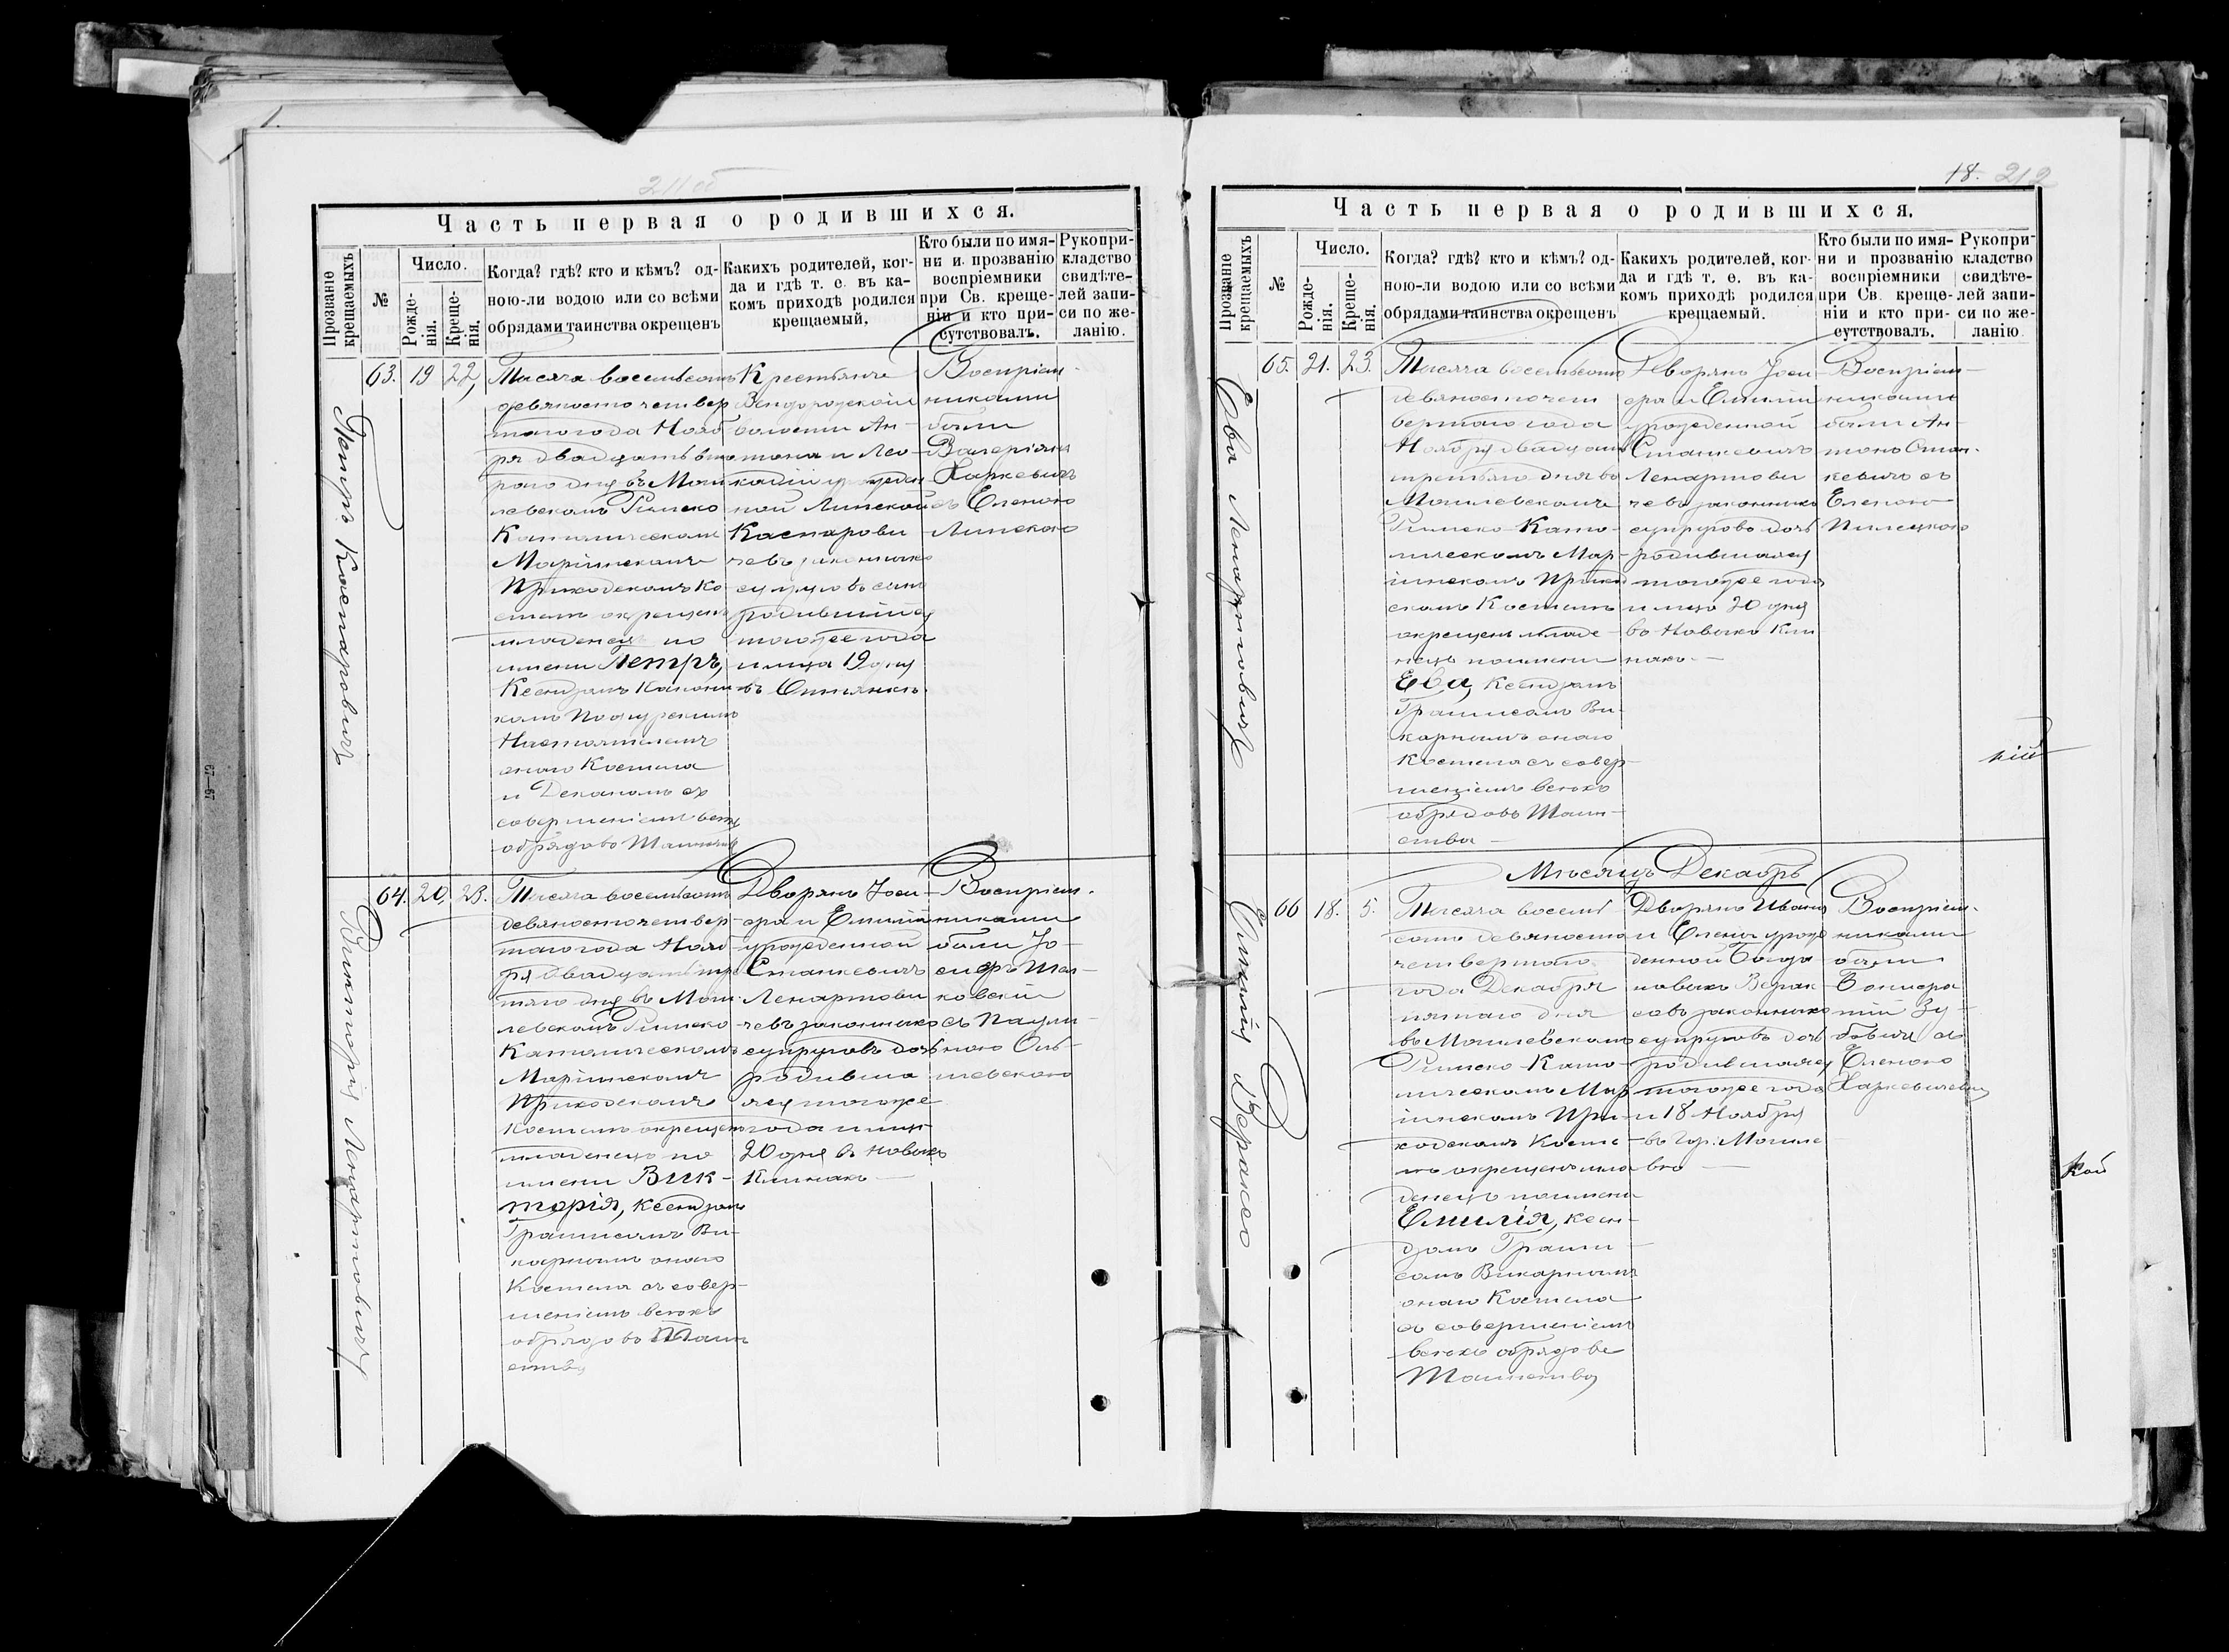 211об
Часть первая о родившихся.
Прозваніе крещаемыхъ
№
Число.
Рожде-
нія.
Креще-
нія.
Когда? гдѣ? кто и кѣмъ? од-
ною-ли водою или со всѣми
обрядами таинства окрещенъ
Какихъ родителей, ког-
да и гдѣ т. е. въ ка-
комъ приходѣ родился
крещаемый.
Кто были по имя-
ни и прозванію
воспріемники
при Св. креще-
ніи и кто при-
сутствовалъ.
Рукопри-
кладство
свидѣте-
лей запи-
си по же-
ланію.
Петръ Каспаровичъ
63. 19 22,
Тысяча восемьсотъ
девяносто четвер
таго года Нояб
ря двадцать вто
раго дня въ Моги
левскомъ Римско
Католическомъ
Маріинскомъ
Приходскомъ Ко
стелѣ окрещенъ
младенецъ по
имени Петръ,
Ксендзомъ Канони
комъ
Настоятелемъ
онаго Костела
и Деканомъ съ
совершеніемъ всехъ
обрядовъ Таинства
Крестьянъ
волости Ан-
тона и Лео-
кадіи урожден
ной Липской
Каспарови
чевъ законныхъ
супруговъ сынъ
родившійся
тогоже года
и мца 19 дня
въ
Воспріем-
никами
были
Валеріянъ
Харкевичъ
съ Еленою
Липскою
Викторія Ленартовичъ
64. 20. 23.
Тысяча восемьсотъ
девяносто четвер-
таго года Нояб-
ря двадцать тре
тяго дня въ Моги
левскомъ Римско
Католическомъ
Маріинскомъ
Приходскомъ
Костелѣ окрещенъ
младенецъ по
имени Вик-
торія, Ксендзомъ
Викарнымъ онаго
Костела съ совер-
шеніемъ всехъ
обрядовъ Таин
ства
Дворянъ Іоси-
фа и Емиліи
урожденной
Станкевичъ
Ленартови
чевъ законныхъ
супруговъ дочь
родивша
яся тогоже
года и мца
20 дня въ Новыхъ
Климкахъ
Воспріем-
никами
были Іо-
сифъ
ковскій
съ Паули-
ною Оль-
шевскою
18. 212
Часть первая о родившихся.
Прозваніе крещаемыхъ
№
Число.
Рожде-
нія.
Креще-
нія.
Когда? гдѣ? кто и кѣмъ? од-
ною-ли водою или со всѣми
обрядами таинства окрещенъ
Какихъ родителей, ког-
да и гдѣ т. е. въ ка-
комъ приходѣ родился
крещаемый.
Кто были по имя-
ни и прозванію
воспріемники
при Св. креще-
ніи и кто при-
сутствовалъ.
Рукопри-
кладство
свидѣте-
лей запи-
си по же-
ланію.
Ева Ленартовичъ
65. 21. 23.
Тысяча восемьсотъ
девяносто чет
вертаго года
Ноября двадцать
третьяго дня въ
Могилевскомъ
Римско-Като-
лическомъ Мар-
іинскомъ Приход
скомъ Костелѣ
окрещенъ младе-
нецъ по имени
Ева, Ксендзомъ
Ви-
карнымъ онаго
Костела съ совер-
шеніемъ всехъ
обрядовъ Таин-
ства
Дворянъ Іоси-
фа и Емиліи
урожденной
Станкевичъ
Ленартови
чевъ законныхъ
супруговъ дочь
родившаяся
тогоже года
и мца 20 дня
въ Новыхъ Кли
мкахъ
Воспріем-
никами
были Ан-
тонъ Стан-
кевичъ съ
Еленою
Пилецкою
Мѣсяцъ Декабрь
Емилія Вераксо
66 18. 5.
Тысяча восемь
сотъ девяносто
четвертаго
года Декабря
пятаго дня
въ Могилевскомъ
Римско-Като-
лическомъ Мар
іинскомъ При-
ходскомъ Косте-
лѣ окрещенъ мла
денецъ по имени
Емилія, Ксен-
дзомъ
Викарнымъ
онаго Костела
съ совершеніемъ
всехъ обрядовъ
Таинства
Дворянъ Ивана
и Елены урож
денной Богда
новичъ Верак-
совъ законныхъ
супруговъ дочь
родившаяся
тогоже года
и 18 Ноября
въ Гор. Могиле
вѣ
Воспріем-
никами
были
Бонифа
тій Зу-
бовичъ съ
Еленою
Харкевичевой